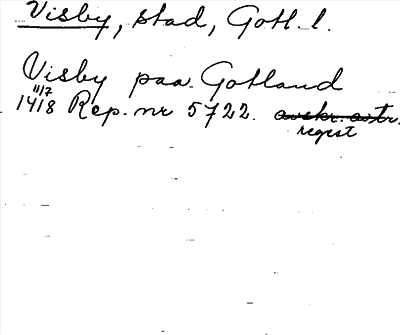 Visby, stad, Gotl. l.
Visby paa Gotland
11/7
1418 Rep. nr 5722. avskr. avtr.
regest